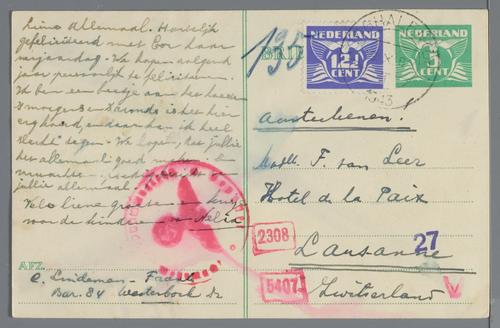 Lieve Allemaal. Hartelijk
gefeliciteerd met Cor haar
verjaardag. We hopen volgend
jaar persoonlijk te feliciteren.
Ik ben een beetje aan het
's morgens en 's avonds is het hier
erg koud, en daar kan ik heel
slecht tegen. We hopen, dat jullie
het allemaal goed maken.
jullie allemaal
Vele lieve groeten en
voor de kinderen Nelia
AFZ.
C. Lindeman-
Bar. 84 Westerbork Dr
BRIEF
NEDERLAND
12½
CENT
NEDERLAND
5
CENT
1943
Aan
Mevr. F. van Leer
Hotel de la Paix
Lausanne
Zwitserland
27
2308
5407